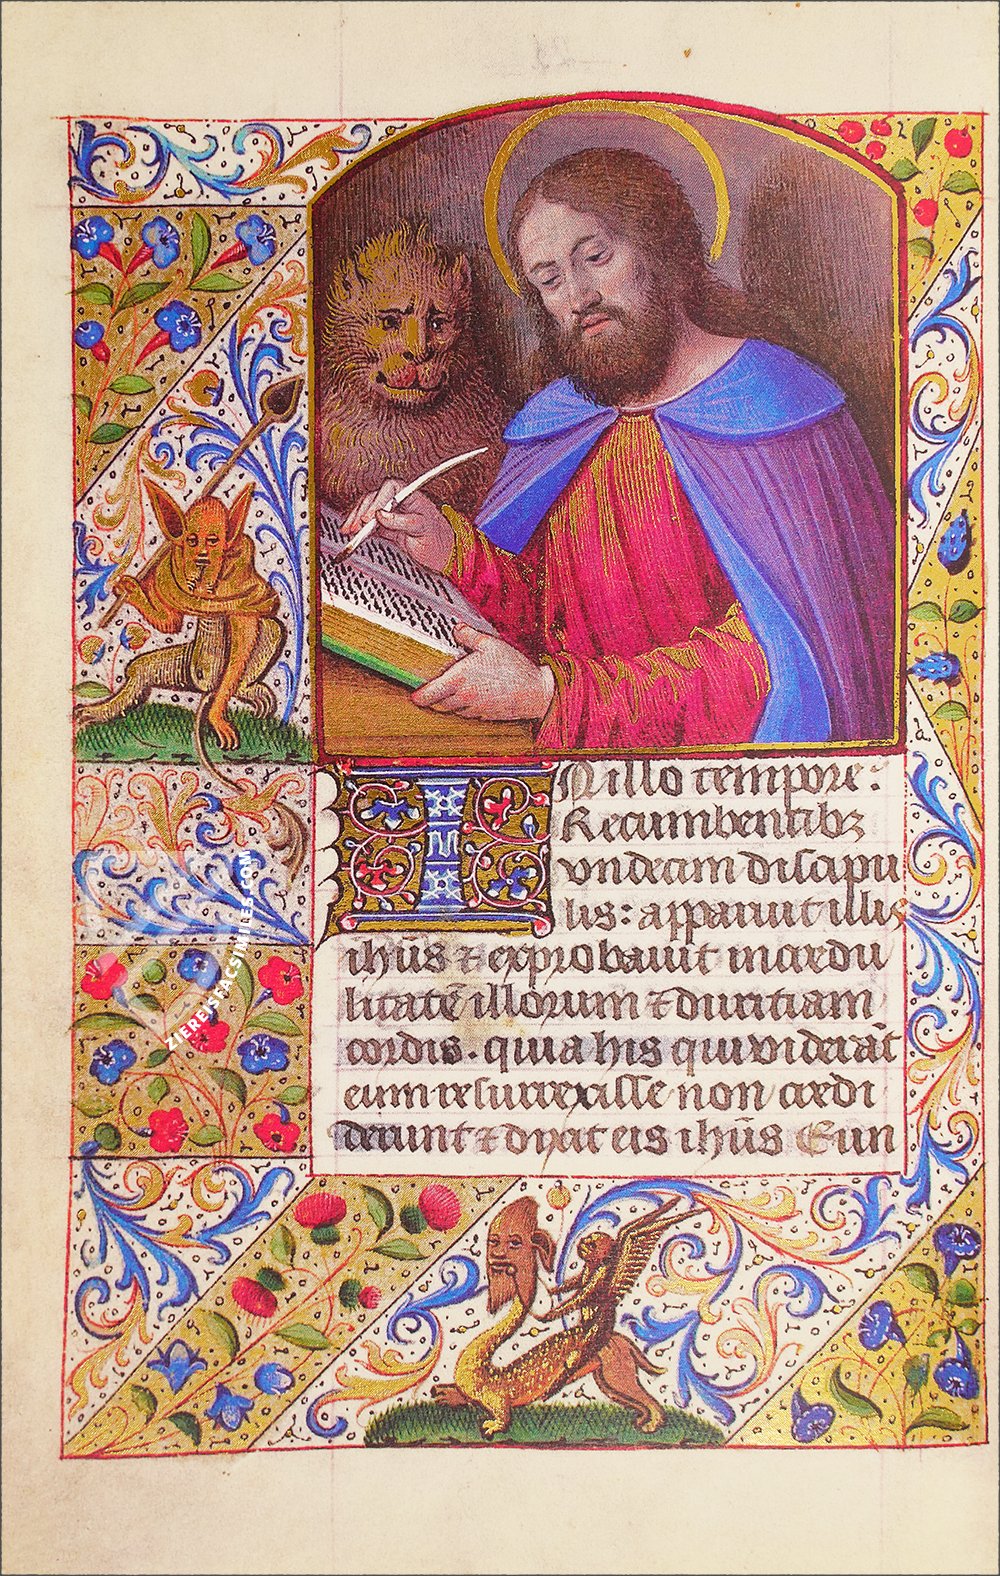 IN illo tempore:
Recumbentibz
vndecim discipu
lis: apparuit illis
ihūs ⁊ exprobauit incredu
litatē illorum ⁊ duritiam
cordis. quia his qui viderāt
eum resurrexisse non credi
derunt ⁊ dixit eis ihūs Eun
ZIEREISFACSIMILES.COM